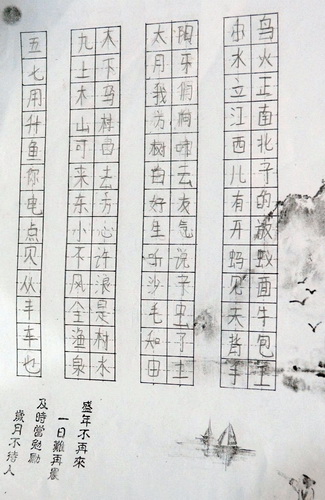 鸟火正南北子的蚁面牛包
水立江西儿有开蚂见天手
阳牙们叶云友气说子虫了土
太月我方树白好生听沙毛知田
木下马桂西去方心许浪是村水
九土木山可来东小不风全渔泉
五七用升鱼你电点贝从丰车也
盛年不再來
一日難再晨
及時當勉勵
歲月不待人